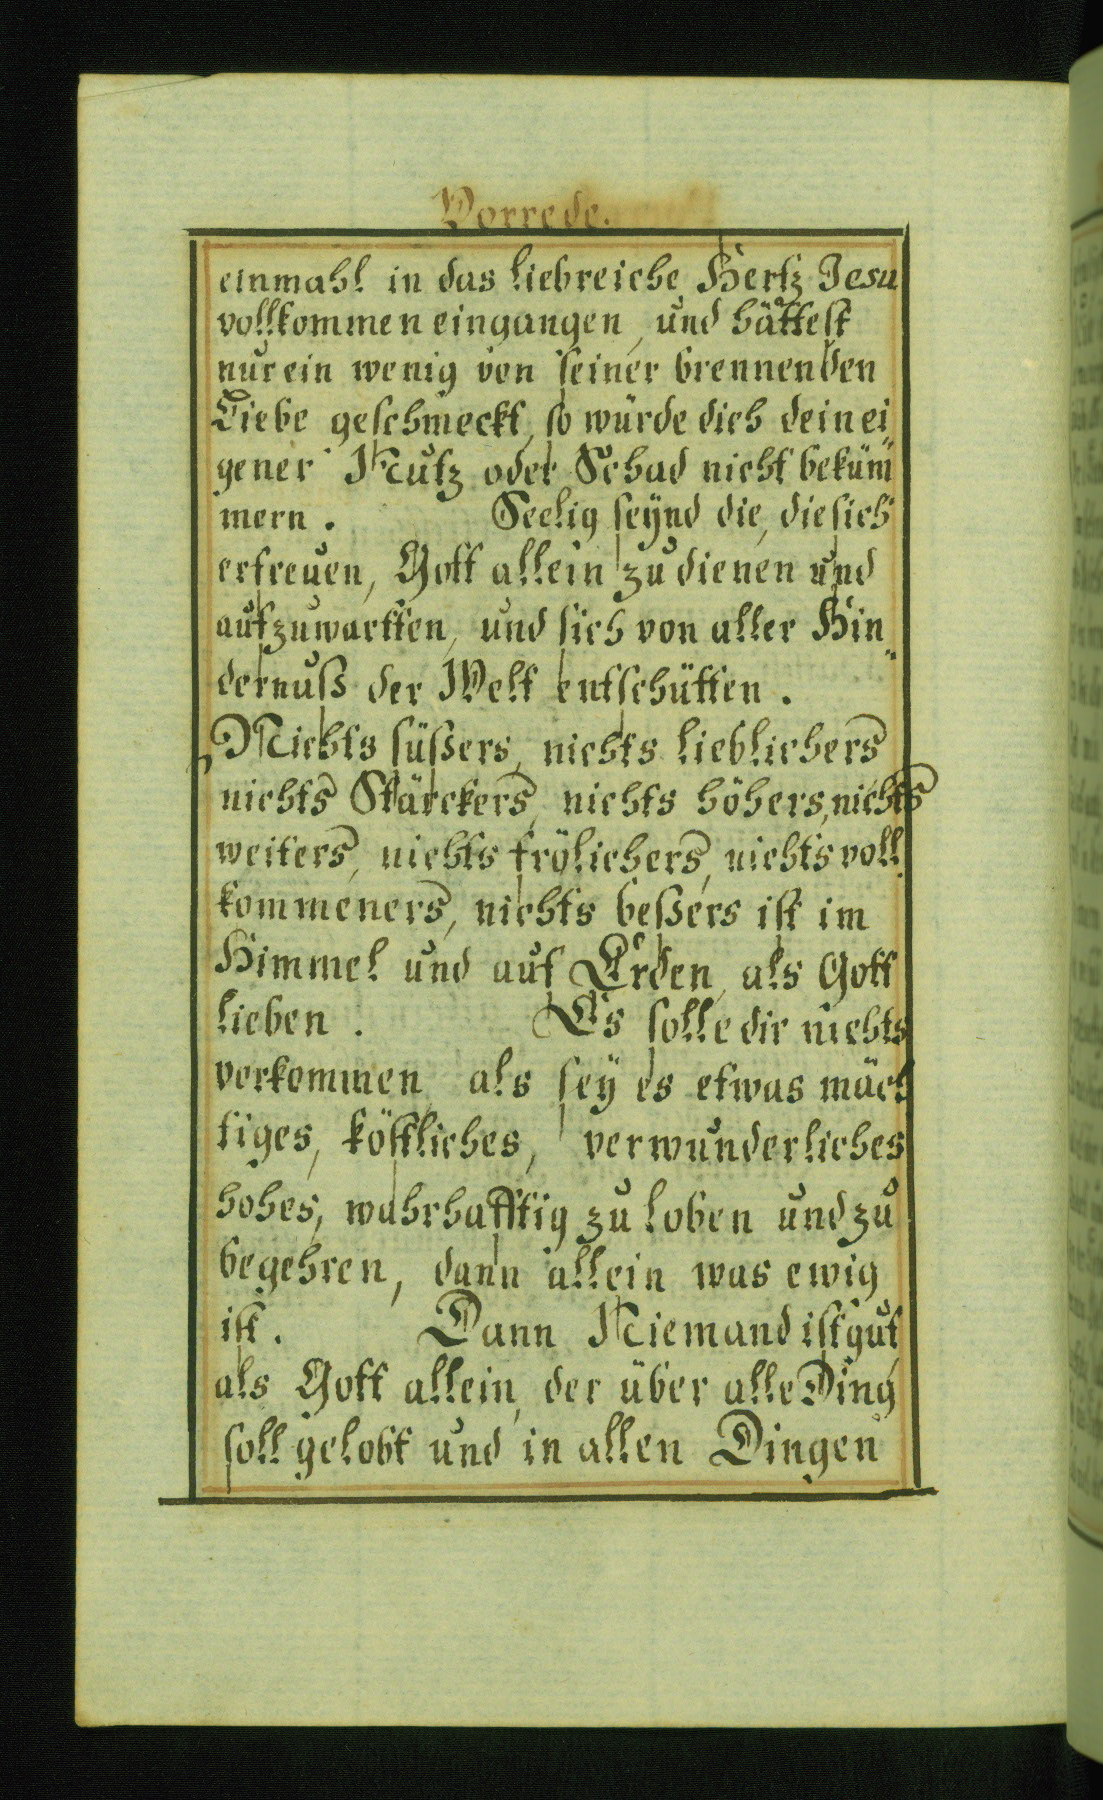 Vorrede.
einmahl in das liebreiche Hertz Jesu
vollkommen eingangen, und hättest
nur ein wenig von seiner brennenden
Liebe geschmeckt, so würde dich dein ei
gener Nutz oder Schad nicht beküm̃
mern. Seelig seÿnd die, die sich
erfreuen, Gott allein zu dienen und
aufzuwartten, und sich von aller Hin„
dernuß der Welt entschütten.
Nichts süßers, nichts lieblichers
nichts Stärckers, nichts höhers, nichts
weiters, nichts frölichers, nichts voll
kommeners, nichts beßers ist im
Himmel und auf Erden, als Gott
lieben. Es solle dir nichts
vorkommen als seÿ es etwas mäch
tiges, köstliches, verwunderliches
hohes, wahrhafftig zu loben und zu
begehren, dann allein was ewig
ist. Dann Niemand ist gut,
als Gott allein, der über alle Ding
soll gelobt und in allen Dingen